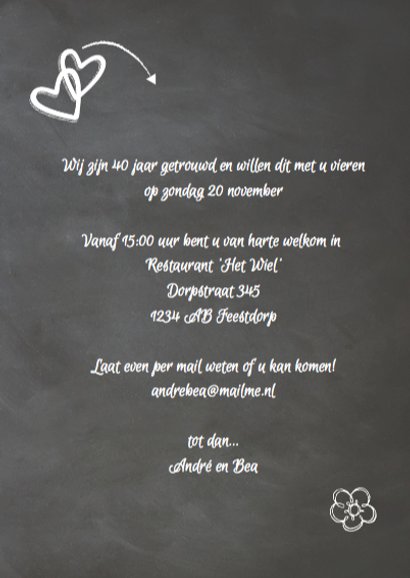 Wij zijn 40 jaar getrouwd en willen dit met u vieren
op zondag 20 november
Vanaf 15:00 uur bent u van harte welkom in
Restaurant 'Het Wiel'
Dorpstraat 345
1234 AB Feestdorp
Laat even per mail weten of u kan komen!
andrebea@mailme.nl
tot dan...
André en Bea